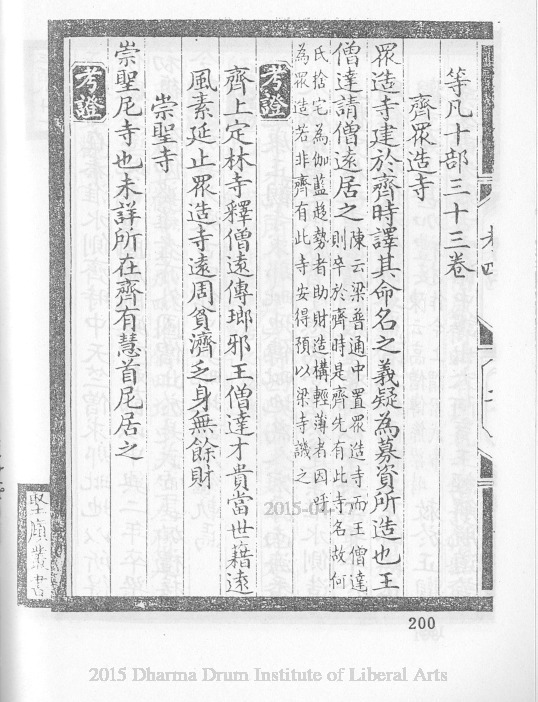 等凡十部三十三卷
齊罛造寺
罛造寺建於齊時譯其命名之義疑為募資所造也王
僧達請僧遠居之
陳云梁普通中置罛造寺而王僧達
則卒於齊時是齊先有此寺名故何
氏捨宅為伽藍趍勢者助財造構輕薄者因呼
為罛造若非齊有此寺安得預以梁寺譏之
考證
齊上定林寺釋僧遠傳瑯邪王僧達才貴當世藉遠
風素延止罛造寺遠周貧濟乏身無餘財
崇聖寺
崇聖尼寺也未詳所在齊有慧首尼居之
考證
卷四
堅㢈叢書
2015-04-17
200
2015 Dharma Drum Institute of Liberal Arts